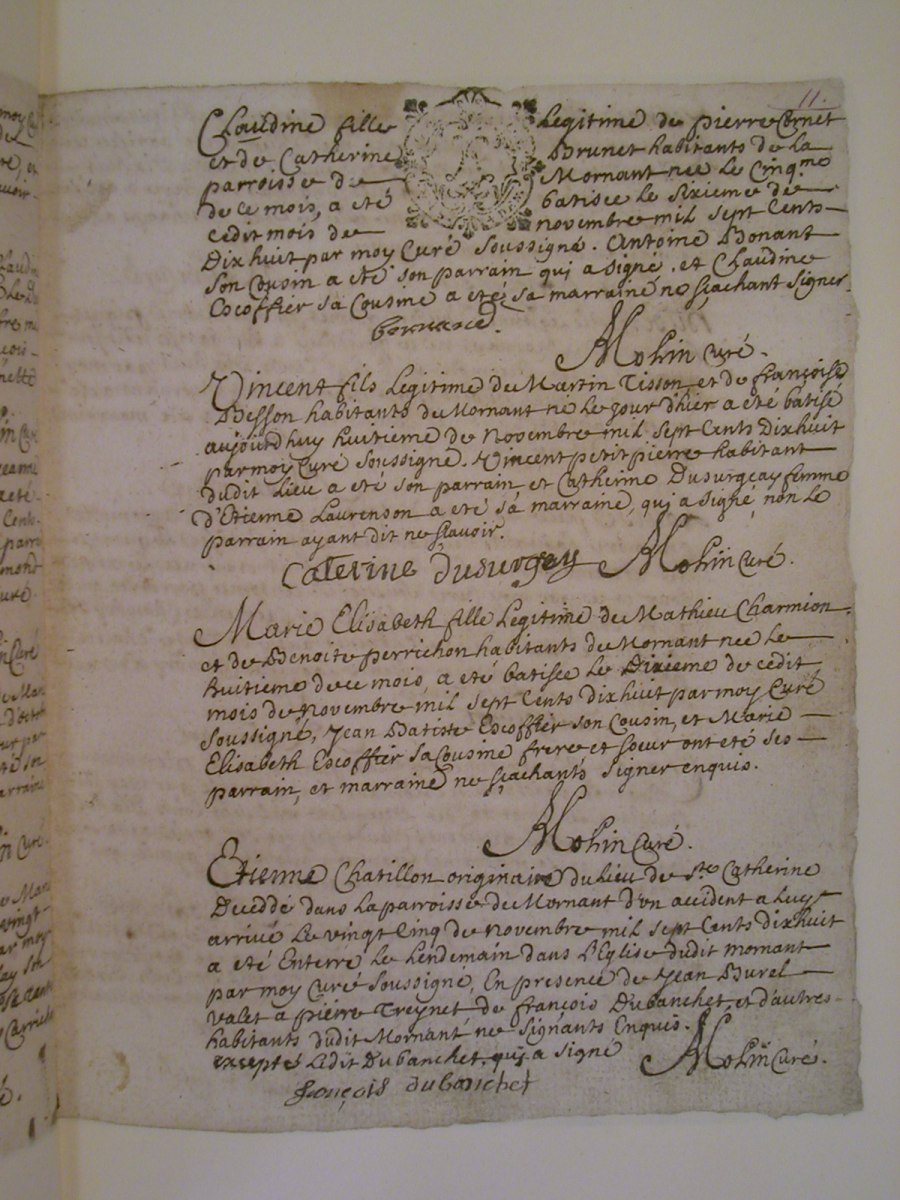 11.
Claudine fille Legitime de pierre Cornet
et de Catherine Brunet habitants de la
parroisse de Mornant nee le Cinq.me
de ce mois, a eté batisée le sixieme de
cedit mois de novembre mil sept Cents
Dixhuit par moy Curé soussigné. Antoine Bonant
son Cousin a eté son parrain qui a signé, et Claudine
Escoffier sa Cousine a eté sa marraine ne sçachant signer.
Mohin Curé.
Vincent fils Legitime de Martin Tisson et de françoise
Besson habitants de Mornant né le jour d'hier a eté batisé
aujourdhuy huitieme de Novembre mil sept Cents Dixhuit
par moy Curé soussigné. Vincent petit pierre habitant
dudit lieu a eté son parrain, et Catherine Dusurgeay femme
d'Etienne Laurenson a eté sa marraine, qui a signé, non le
parrain ayant dit ne sçavoir.
Caterine Dusurgey Mohin Curé.
Marie Elisabeth fille Legitime de Mathieu Charmion
et de Benoite perrichon habitants de Mornant nee le
huitieme de ce mois, a eté batisée le Dixieme de cedit
mois de novembre mil sept Cents dixhuit par moy Curé
soussigné, Jean Batiste Escoffier son Cousin, et Marie
Elisabeth Escoffier sa Cousine frere et soeur ont eté ses
parrain, et marraine ne sçachants signer enquis.
Mohin Curé.
Etienne Chatillon originaire du lieu de Ste Catherine
Decedé dans la parroisse de Mornant d'un accident a luy
arrivé le vingt Cinq de novembre mil sept Cents dixhuit
a eté Enterré le lendemain dans l'Eglise dudit mornant
par moy Curé soussigné, En presence de Jean Burel
valet a pierre Treynet de françois Dubanchet, et d'autres
habitants dudit Mornant ne signants Enquis.
exceptés ledit Dubanchet, qui a signé Mohin Curé.
françois dubanchet